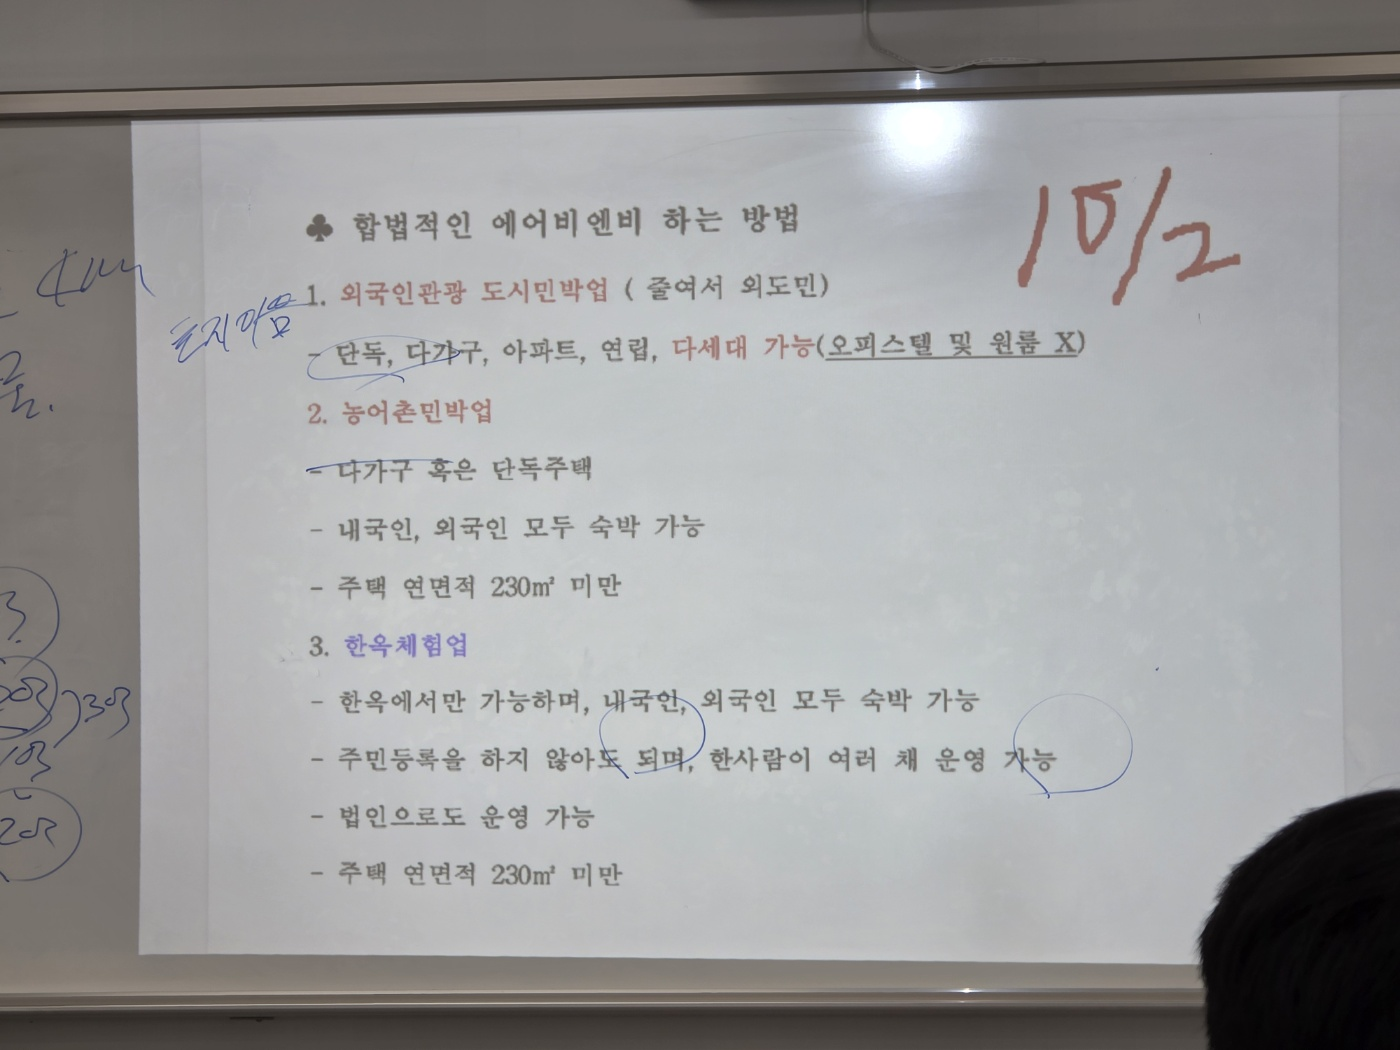 ♣ 합법적인 에어비엔비 하는 방법
10/2
1. 외국인관광 도시민박업 ( 줄여서 외도민)
- 단독, 다가구, 아파트, 연립, 다세대 가능(오피스텔 및 원룸 X)
2. 농어촌민박업
- 다가구 혹은 단독주택
- 내국인, 외국인 모두 숙박 가능
- 주택 연면적 230㎡ 미만
3. 한옥체험업
- 한옥에서만 가능하며, 내국인, 외국인 모두 숙박 가능
- 주민등록을 하지 않아도 되며, 한사람이 여러 채 운영 가능
- 법인으로도 운영 가능
- 주택 연면적 230㎡ 미만